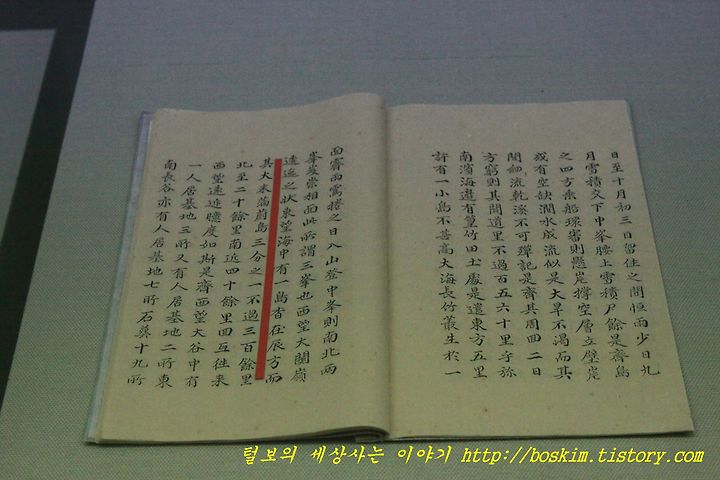 日至十月初三日留住之間恒雨少日九
月雪積交下中峯腰上雪積尺餘是齊島
之四方乘船環審則懸崖撑空層立壁岸
或有空缺澗水成流似是大旱不渴而其
間細流乾溪不可殫記是齊其周回二日
方窮則其間道里不過百五六十里乎旀
南濱海邊有篁竹田土處是遣東方五里
許有一小島不甚高大海長竹叢生於一
面霽雨霾捲之日入山登中峯則南北兩
峯岌崇相面此所謂三峯也西望大關嶺
逶迤之狀東望海中有一島杳在辰方而
其大未滿蔚島三分之一不過三百餘里
北至二十餘里南近四十餘里回互往來
西望遠近臆度如斯是齊西望大谷中有
一人居基地三所又有人居基地二所東
南長谷亦有人居基地七所石葬十九所
털보의 세상사는 이야기 http://boskim.tistory.com